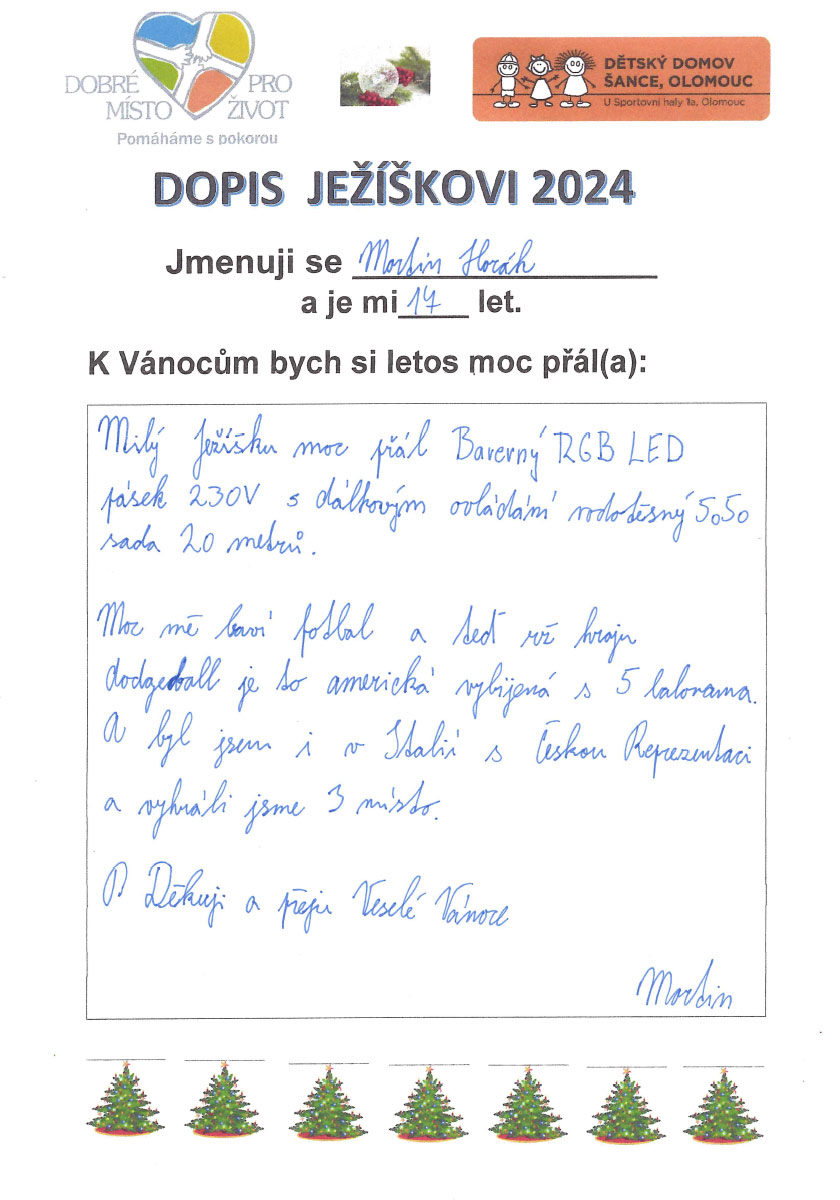 DOBRÉ PRO
MÍSTO ŽIVOT
Pomáháme s pokorou
DĚTSKÝ DOMOV
ŠANCE, OLOMOUC
U Sportovní haly 1a, Olomouc
DOPIS JEŽÍŠKOVI 2024
Jmenuji se Martin Horák
a je mi 17 let.
K Vánocům bych si letos moc přál(a):
Milý Ježíšku moc přál Baverný RGB LED
pásek 230V s dálkovým ovládání vodotěsný 5050
sada 20 metrů.
Moc mě baví fotbal a teď už hraju
dodgeball je to americká vybijená s 5 balonama.
A byl jsem i v Itálii s Českou Reprezentaci
a vyhráli jsme 3 místo.
D Děkuji a přeju Veselé Vánoce
Martin